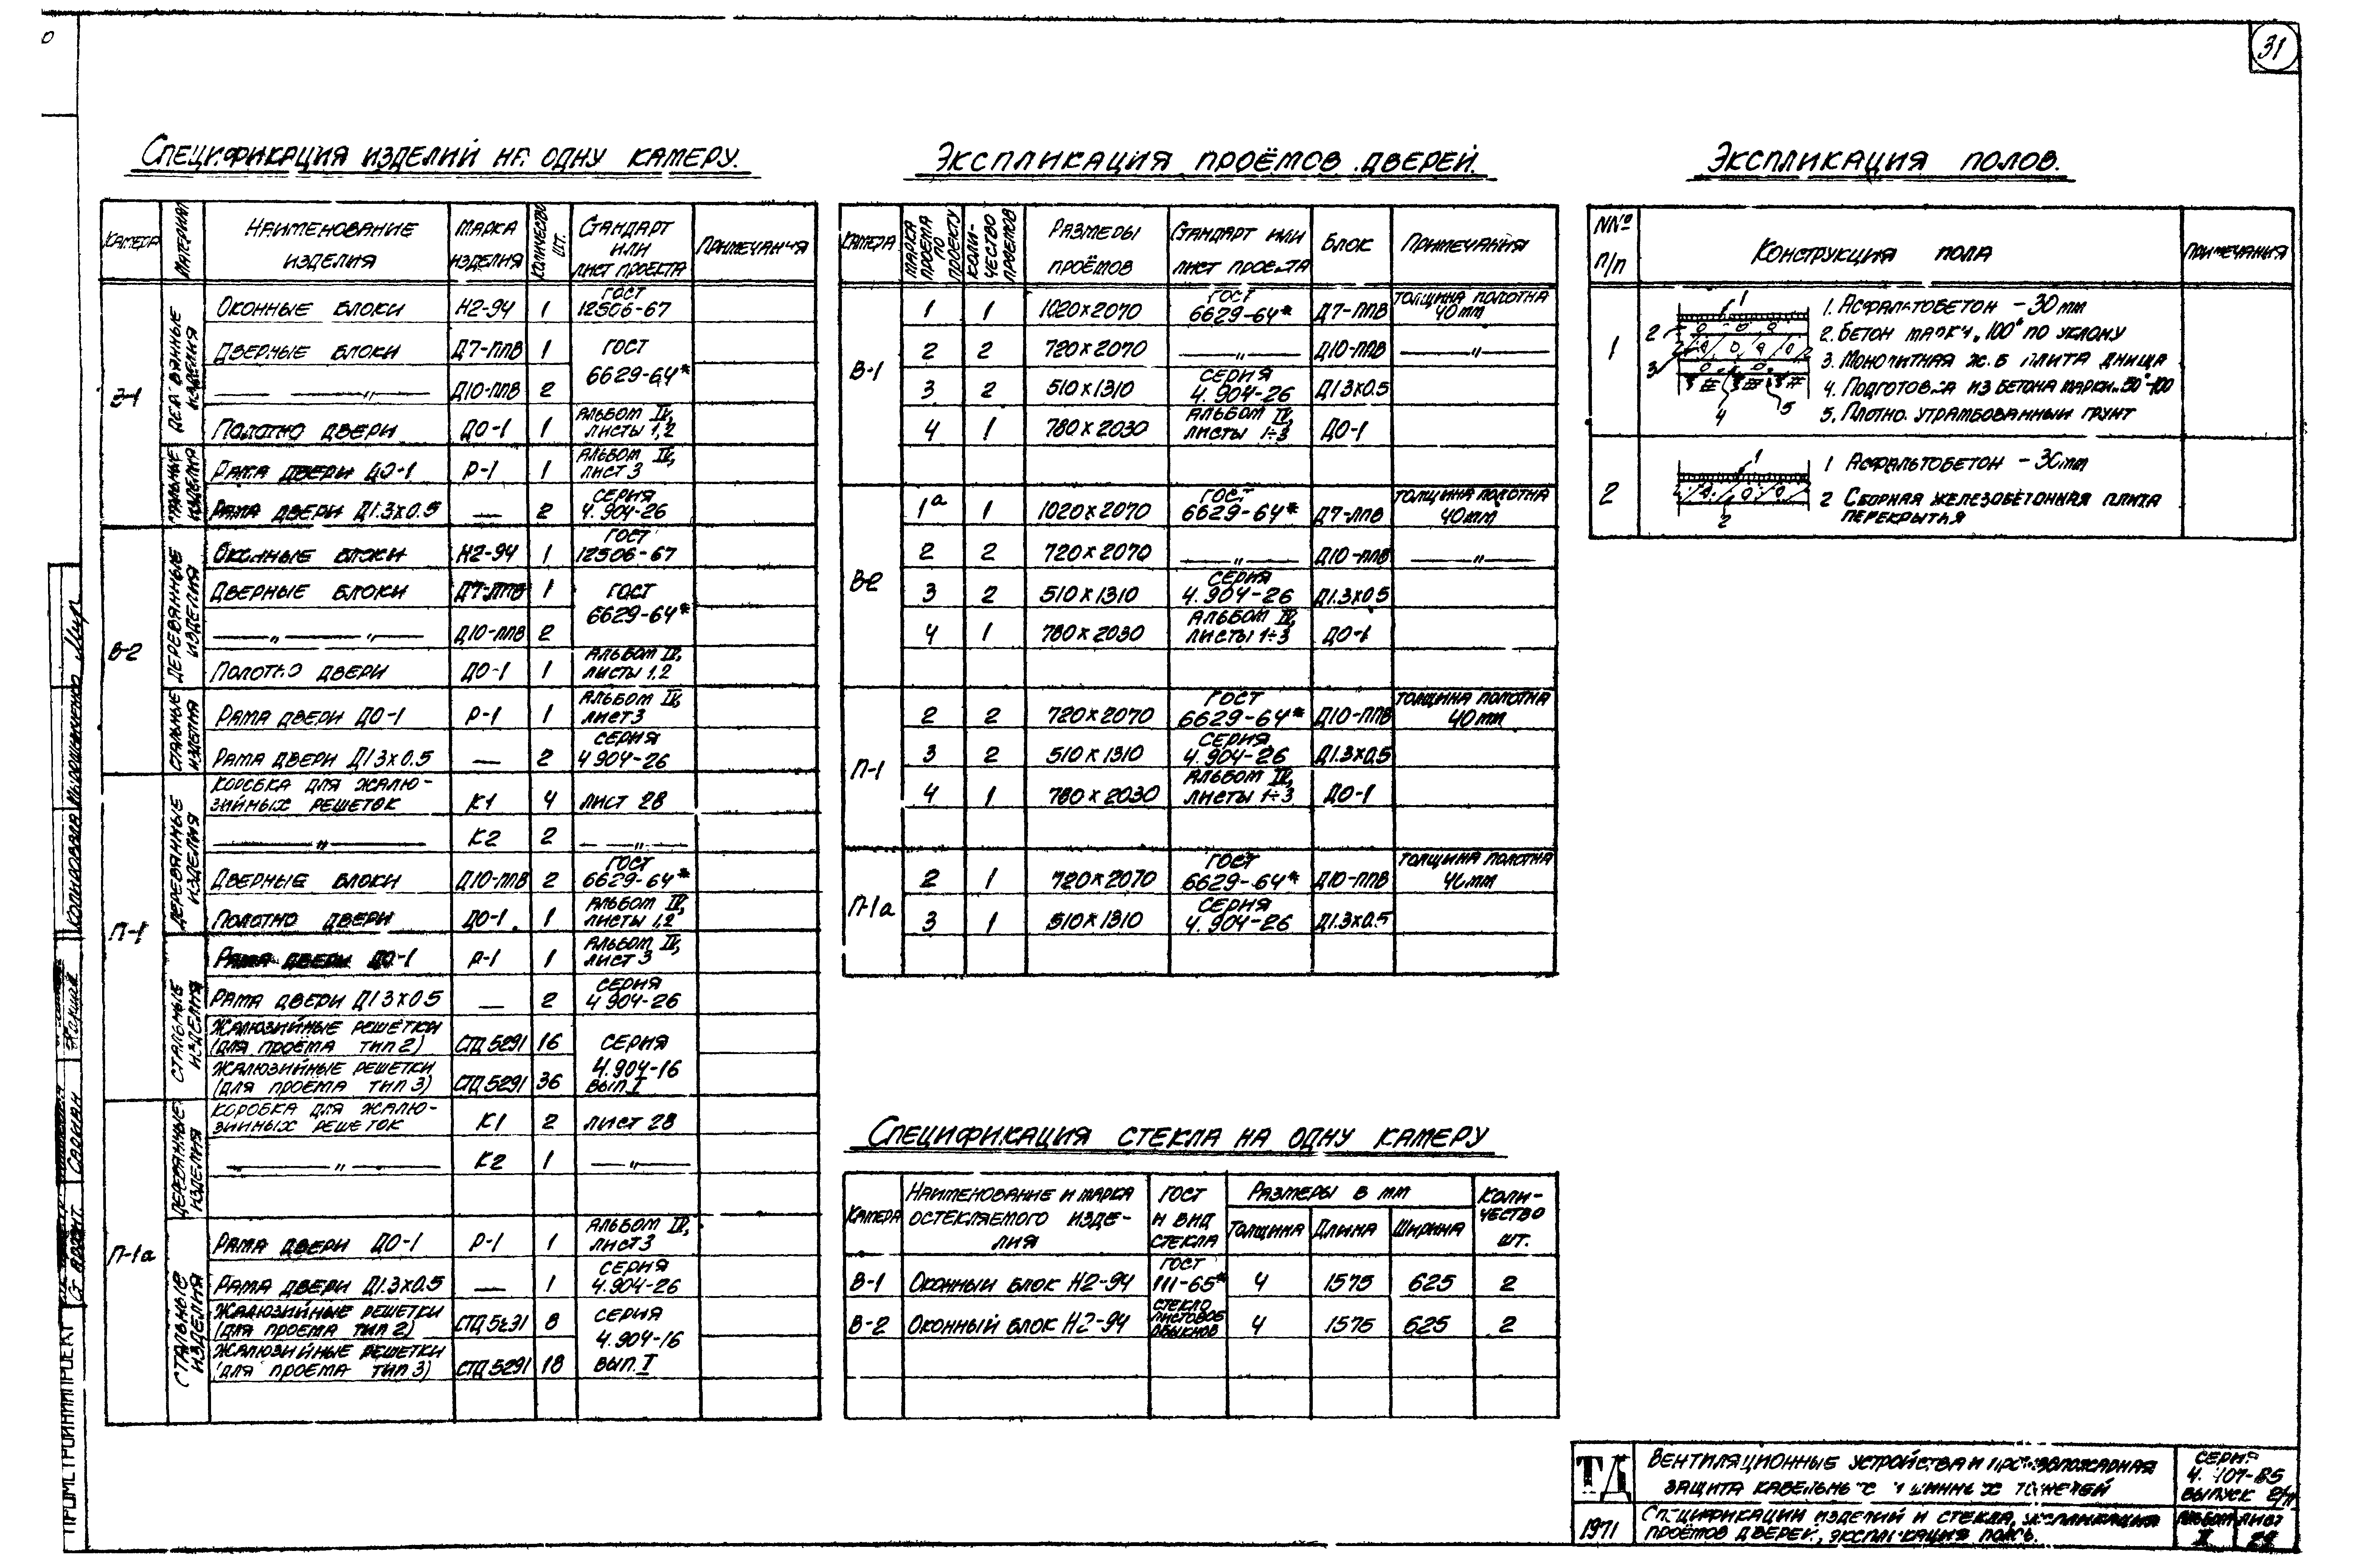 31
Спецификация изделий на одну камеру.
Камера Материал Наименование изделия Марка изделия Количество шт. Стандарт или лист проекта Примечания
В-1
Деревянные изделия
Оконные блоки Н2-94 1 ГОСТ 12506-67
Дверные блоки Д7-ППВ 1 ГОСТ 6629-64*
— „ — Д10-ППВ 2
Полотно двери ДО-1 1 Альбом IV, листы 1,2
Стальные изделия
Рама двери ДО-1 Р-1 1 Альбом IV, лист 3
Рама двери Д1.3х0.5 — 2 Серия 4.904-26
В-2
Деревянные изделия
Оконные блоки Н2-94 1 ГОСТ 12506-67
Дверные блоки Д7-ППВ 1 ГОСТ 6629-64*
— „ — „ — Д10-ППВ 2
Полотно двери ДО-1 1 Альбом IV, листы 1,2
Стальные изделия
Рама двери ДО-1 Р-1 1 Альбом IV, лист 3
Рама двери Д1 3х0.5 — 2 Серия 4 904-26
П-1
Деревянные изделия
Коробка для жалюзийных решеток К1 4 лист 28
— „ — К2 2 — „ —
Дверные блоки Д10-ППВ 2 ГОСТ 6629-64*
Полотно двери ДО-1 1 Альбом IV, листы 1,2
Стальные изделия
Рама двери ДО-1 Р-1 1 Альбом IV, лист 3
Рама двери Д1 3х0.5 — 2 Серия 4 904-26
Жалюзийные решетки (для проёма тип 2) СТД 5291 16 Серия
Жалюзийные решетки (для проёма тип 3) СТД 5291 36 4.904-16 вып. I
П-1а
Деревянные изделия
Коробка для жалюзийных решеток К1 2 лист 28
— „ — К2 1 — „ —
Стальные изделия
Рама двери ДО-1 Р-1 1 Альбом IV, лист 3
Рама двери Д1.3х0.5 — 1 Серия 4.904-26
Жалюзийные решетки (для проема тип 2) СТД 5291 8 Серия 4.904-16
Жалюзийные решетки (для проема тип 3) СТД 5291 18 вып. I
Экспликация проёмов дверей.
Камера Марка проема по проекту Количество проемов Размеры проёмов Стандарт или лист проекта Блок Примечания
В-1
1 1 1020х2070 ГОСТ 6629-64* Д7-ППВ Толщина полотна 40мм
2 2 720х2070 — „ — Д10-ППВ — „ —
3 2 510х1310 Серия 4.904-26 Д1.3х0.5
4 1 780х2030 Альбом IV, листы 1÷3 ДО-1
В-2
1а 1 1020х2070 ГОСТ 6629-64* Д7-ППВ Толщина полотна 40мм
2 2 720х2070 — „ — Д10-ППВ — „ —
3 2 510х1310 Серия 4.904-26 Д1.3х0.5
4 1 780х2030 Альбом IV, листы 1÷3 ДО-1
П-1
2 2 720х2070 ГОСТ 6629-64* Д10-ППВ Толщина полотна 40мм
3 2 510х1310 Серия 4.904-26 Д1.3х0.5
4 1 780х2030 Альбом IV, листы 1÷3 ДО-1
П-1а
2 1 720х2070 ГОСТ 6629-64* Д10-ППВ Толщина полотна 40мм
3 1 510х1310 Серия 4.904-26 Д1.3х0.5
Экспликация полов.
NNº п/п Конструкция пола Примечания
1
1 2 3 4 5
1. Асфальтобетон - 30мм
2. Бетон марки „100" по уклону
3. Монолитная ж.б плита днища
4. Подготовка из бетона марки „50"-100
5. Плотно утрамбованный грунт
2
1 2
1 Асфальтобетон - 30мм
2 Сборная железобетонная плита
перекрытия
Спецификация стекла на одну камеру
Камера Наименование и марка остекляемого изделия ГОСТ и вид стекла Размеры в мм Количество шт.
Толщина Длина Ширина
В-1 Оконный блок Н2-94 ГОСТ 111-65* 4 1575 625 2
В-2 Оконный блок Н2-94 стекло листовое обыкнов 4 1575 625 2
ТД
Вентиляционные устройства и противопожарная
защита кабельных и шинных тоннелей
Серия
4.407-85
Выпуск
1971
Спецификации изделий и стекла, экспликация
проёмов дверей, экспликация полов.
Альбом II
Лист 29
Копировала Мирошниченко
Сариан
Промстройниипроект